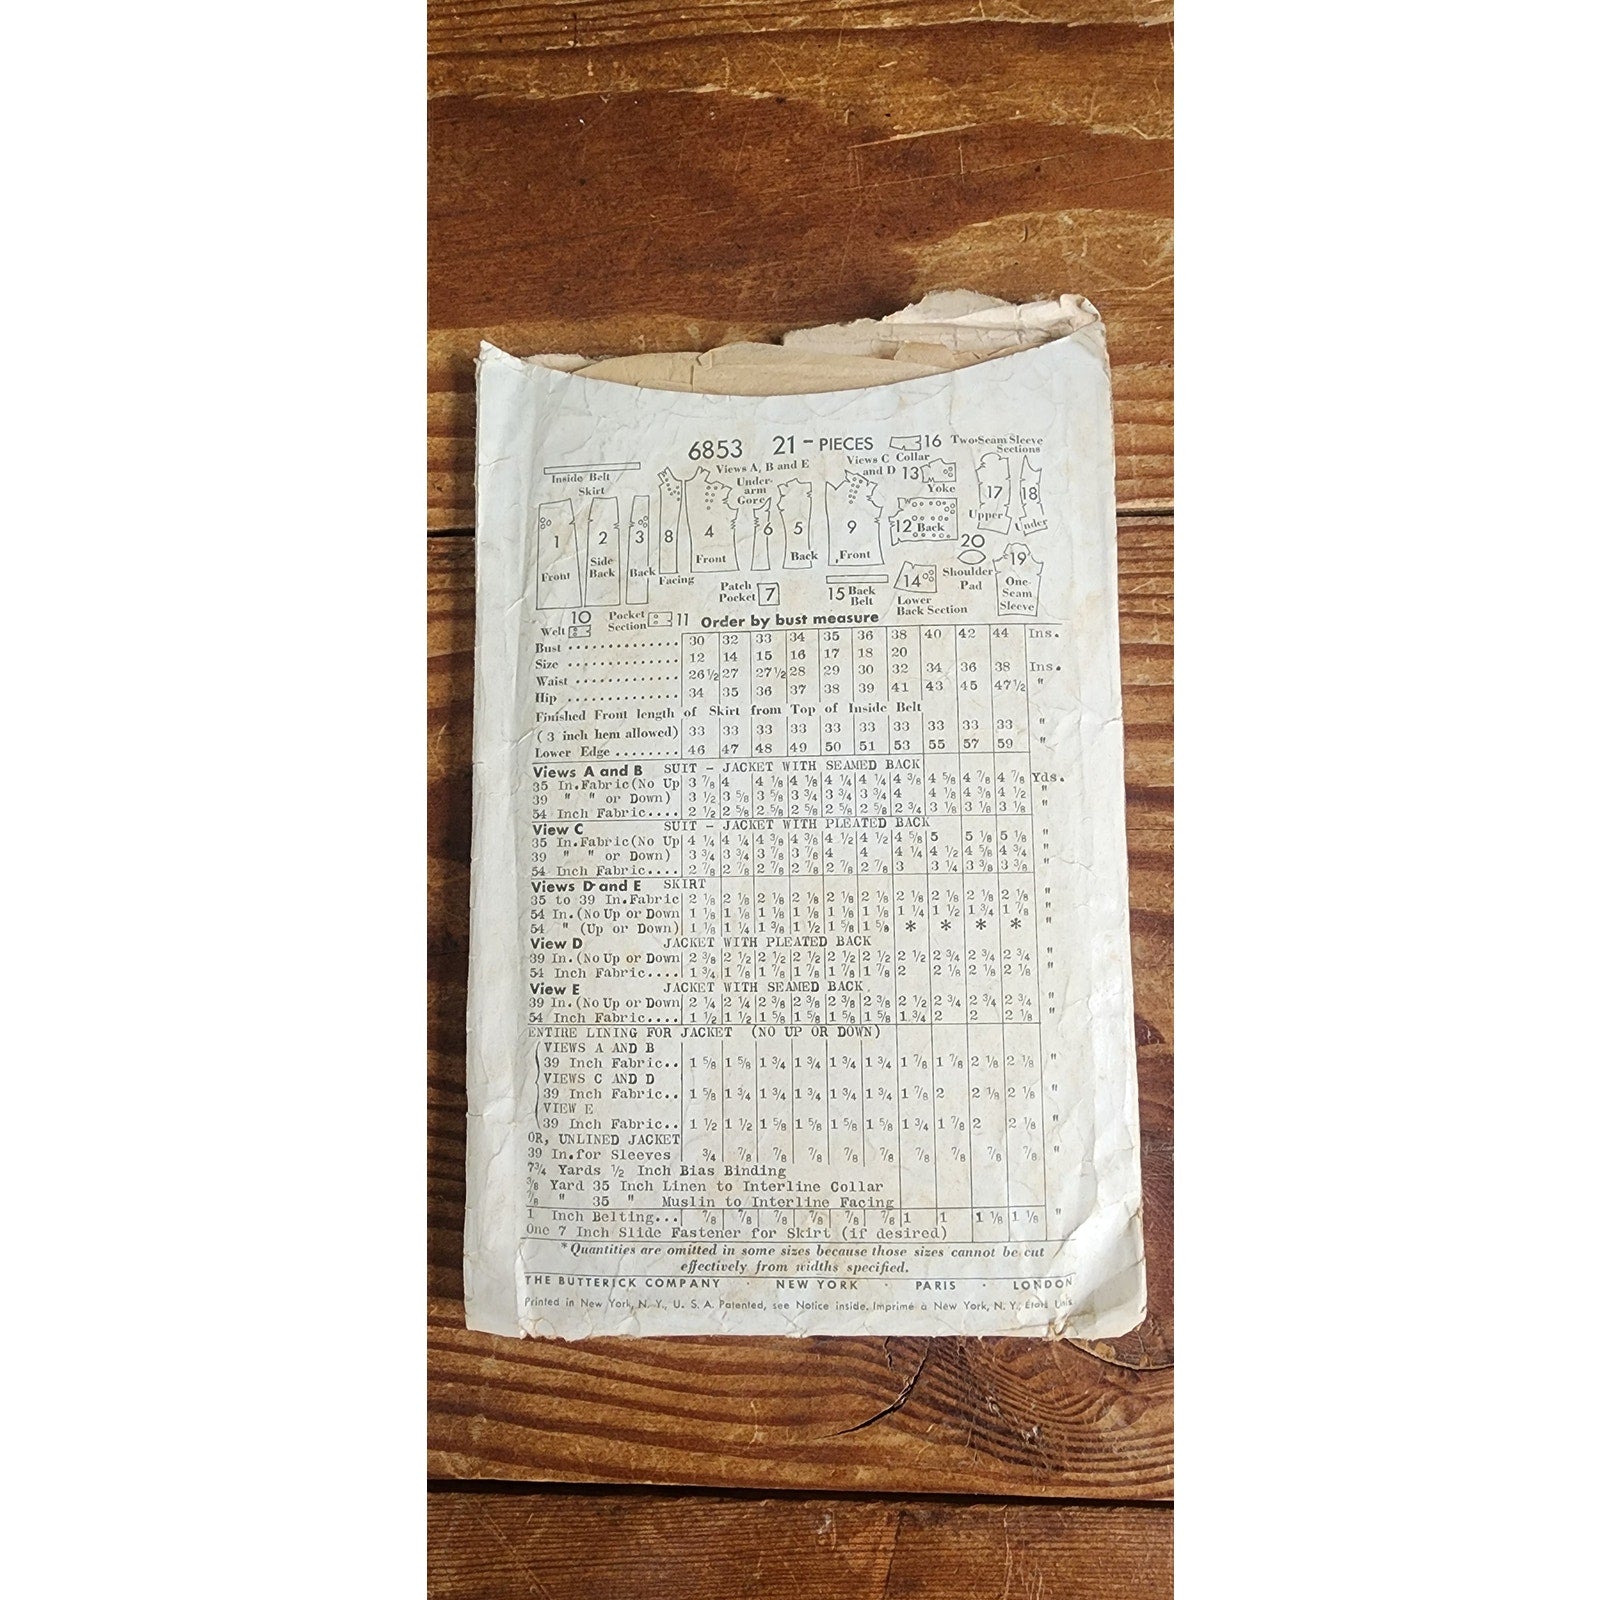 6853 21 - PIECES
16 Two-Seam Sleeve Sections
Views C and D Collar
Views A, B and E
13
Yoke
Inside Belt
Skirt
Under-arm Gore
17 18
Upper Under
1 2 3 8 4 6 5 9 12 Back
Front Side Back Back Facing Front Back Front
20
Shoulder Pad
19
One Seam Sleeve
Patch Pocket 7
15 Back Belt
14
Lower Back Section
10
Welt
Pocket Section 11
Order by bust measure
Bust 30 32 33 34 35 36 38 40 42 44 Ins.
Size 12 14 15 16 17 18 20
Waist 26 1/2 27 27 1/2 28 29 30 32 34 36 38 Ins.
Hip 34 35 36 37 38 39 41 43 45 47 1/2 "
Finished Front length of Skirt from Top of Inside Belt
(3 inch hem allowed) 33 33 33 33 33 33 33 33 33 33 "
Lower Edge 46 47 48 49 50 51 53 55 57 59 "
Views A and B SUIT - JACKET WITH SEAMED BACK
35 In. Fabric (No Up 3 7/8 4 4 1/8 4 1/8 4 1/4 4 1/4 4 3/8 4 5/8 4 7/8 4 7/8 Yds.
39 " " or Down) 3 1/2 3 5/8 3 5/8 3 3/4 3 3/4 3 3/4 4 4 1/8 4 3/8 4 1/2 "
54 Inch Fabric.... 2 1/2 2 5/8 2 5/8 2 5/8 2 5/8 2 5/8 2 3/4 3 1/8 3 1/8 3 1/8 "
View C SUIT - JACKET WITH PLEATED BACK
35 In. Fabric (No Up 4 1/4 4 1/4 4 3/8 4 3/8 4 1/2 4 1/2 4 5/8 5 5 1/8 5 1/8 "
39 " " or Down) 3 3/4 3 3/4 3 7/8 3 7/8 4 4 4 1/4 4 1/2 4 5/8 4 3/4 "
54 Inch Fabric.... 2 7/8 2 7/8 2 7/8 2 7/8 2 7/8 2 7/8 3 3 1/4 3 3/8 3 3/8 "
Views D and E SKIRT
35 to 39 In. Fabric 2 1/8 2 1/8 2 1/8 2 1/8 2 1/8 2 1/8 2 1/8 2 1/8 2 1/8 2 1/8 "
54 In. (No Up or Down 1 1/8 1 1/8 1 1/8 1 1/8 1 1/8 1 1/8 1 1/4 1 1/2 1 3/4 1 7/8 "
54 " (Up or Down) 1 1/8 1 1/4 1 3/8 1 1/2 1 5/8 1 5/8 * * * * "
View D JACKET WITH PLEATED BACK
39 In. (No Up or Down 2 3/8 2 1/2 2 1/2 2 1/2 2 1/2 2 1/2 2 1/2 2 3/4 2 3/4 2 3/4 "
54 Inch Fabric.... 1 3/4 1 7/8 1 7/8 1 7/8 1 7/8 1 7/8 2 2 1/8 2 1/8 2 1/8 "
View E JACKET WITH SEAMED BACK
39 In. (No Up or Down 2 1/4 2 1/4 2 3/8 2 3/8 2 3/8 2 3/8 2 1/2 2 3/4 2 3/4 2 3/4 "
54 Inch Fabric.... 1 1/2 1 1/2 1 5/8 1 5/8 1 5/8 1 5/8 1 3/4 2 2 2 1/8 "
ENTIRE LINING FOR JACKET (NO UP OR DOWN)
VIEWS A AND B
39 Inch Fabric.. 1 5/8 1 5/8 1 3/4 1 3/4 1 3/4 1 3/4 1 7/8 1 7/8 2 1/8 2 1/8 "
VIEWS C AND D
39 Inch Fabric.. 1 5/8 1 3/4 1 3/4 1 3/4 1 3/4 1 3/4 1 7/8 2 2 1/8 2 1/8 "
VIEW E
39 Inch Fabric.. 1 1/2 1 1/2 1 5/8 1 5/8 1 5/8 1 5/8 1 3/4 1 7/8 2 2 1/8 "
OR, UNLINED JACKET
39 In. for Sleeves 3/4 7/8 7/8 7/8 7/8 7/8 7/8 7/8 7/8 7/8 "
7 3/4 Yards 1/2 Inch Bias Binding
3/8 Yard 35 Inch Linen to Interline Collar
7/8 " 35 " Muslin to Interline Facing
1 Inch Belting... 7/8 7/8 7/8 7/8 7/8 7/8 1 1 1 1/8 1 1/8 "
One 7 Inch Slide Fastener for Skirt (if desired)
*Quantities are omitted in some sizes because those sizes cannot be cut
effectively from widths specified.
THE BUTTERICK COMPANY · NEW YORK · PARIS · LONDON
Printed in New York, N. Y., U. S. A. Patented, see Notice inside. Imprimé à New York, N. Y., États Unis